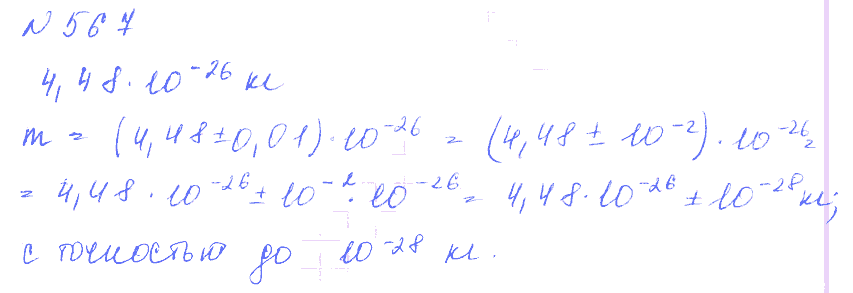 № 567
4,48·10⁻²⁶ кг
m = (4,48±0,01)·10⁻²⁶ = (4,48 ± 10⁻²)·10⁻²⁶ =
= 4,48·10⁻²⁶ ± 10⁻²·10⁻²⁶ = 4,48·10⁻²⁶ ± 10⁻²⁸ кг;
с точностью до 10⁻²⁸ кг.